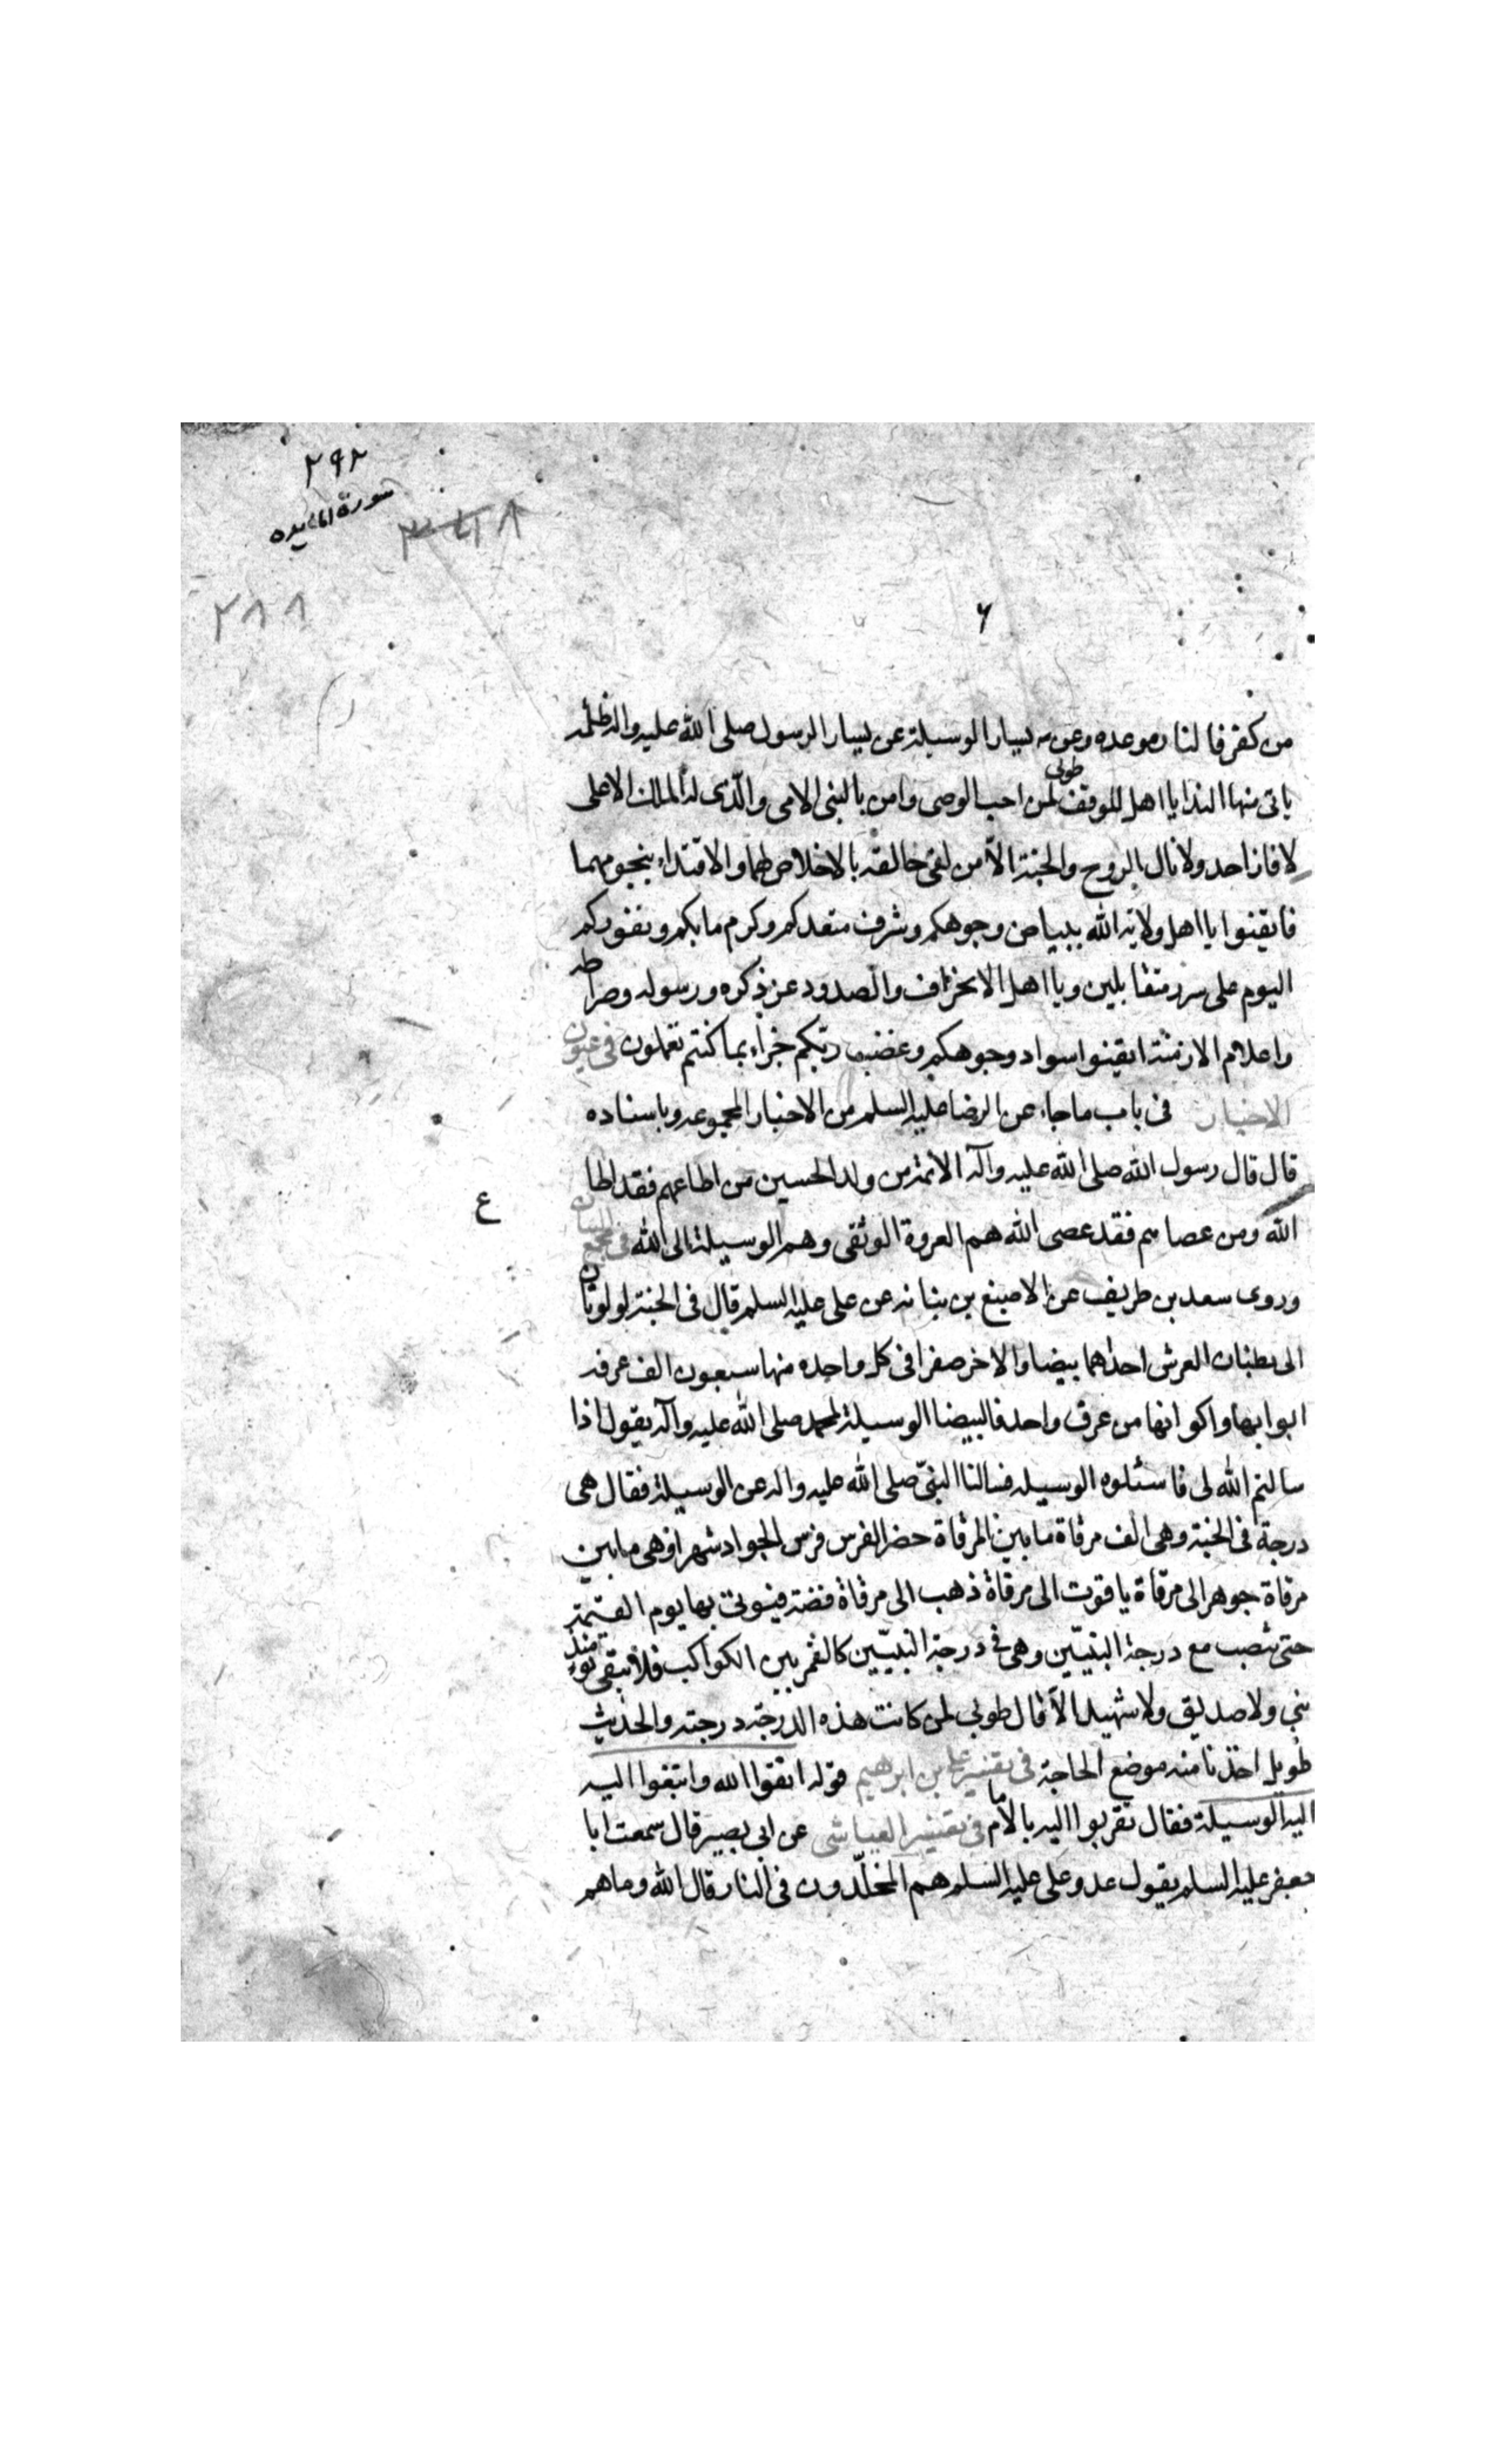 ٢٩٢
سورة المايده
٢٨٨
٦
من كفر فالنار موعده وعن يسار الوسيلة عن يسار الرسول صلى الله عليه واله ظلمة
ياتى منها الندا يا اهل الموقف طوبى لمن احب الوصى وامن بالنبى الامى والّذى له الملك الاعلى
لا فاز احد ولا نال الروح والجنة الاّ من لقى خالقه بالاخلاص لهما والاقتداء بنجومهما
فايقنوا يا اهل ولاية الله ببياض وجوهكم وشرف مقعدكم وكرم مابكم وبفوزكم
اليوم على سرر متقابلين ويا اهل الانحراف والصدود عن ذكره ورسوله وصراطه
واعلام الازمنة ايقنوا سواد وجوهكم وغضب ربكم جزاء بما كنتم تعملون فى عيون
الاخبار فى باب ماجاء عن الرضا عليه السلم من الاخبار المجموعه وباسناده
قال قال رسول الله صلى الله عليه وآله الائمة من ولد الحسين من اطاعهم فقد اطاع
الله ومن عصاهم فقد عصى الله هم العروة الوثقى وهم الوسيلة الى الله فى مجمع البيان
وروى سعد بن طريف عن الاصبغ بن نباته عن على عليه السلم قال فى الجنة لولوتان
الى بطنان العرش احداهما بيضا والاخر صفرا فى كل واحده منها سبعون الف غرفه
ابوابها واكوابها من عرق واحد فالبيضا الوسيلة لمحمد صلى الله عليه وآله يقول اذا
سالتم الله لى فاسئلوه الوسيله فسالنا النبىّ صلى الله عليه واله عن الوسيلة فقال هى
درجة فى الجنة وهى الف مرقاة ما بين المرقاة حضر الفرس فرس الجواد شهرا وهى مابين
مرقاة جوهر الى مرقاة ياقوت الى مرقاة ذهب الى مرقاة فضة فيؤتى بها يوم القيمة
حتى تنصب مع درجة النبيّين وهى فى درجة النبيّين كالقمر بين الكواكب فلا يبقى يومئذ
نبى ولا صديق ولا شهيد الاّ قال طوبى لمن كانت هذه الدرجة درجته والحديث
طويل اخذنا منه موضع الحاجة فى تفسير على بن ابرهيم قوله اتقوا الله وابتغوا اليه
اليه الوسيلة فقال تقربوا اليه بالامام فى تفسير العياشى عن ابى بصير قال سمعت ابا
جعفر عليه السلم يقول عدو على عليه السلم هم المخلّدون فى النار قال الله وماهم
ع